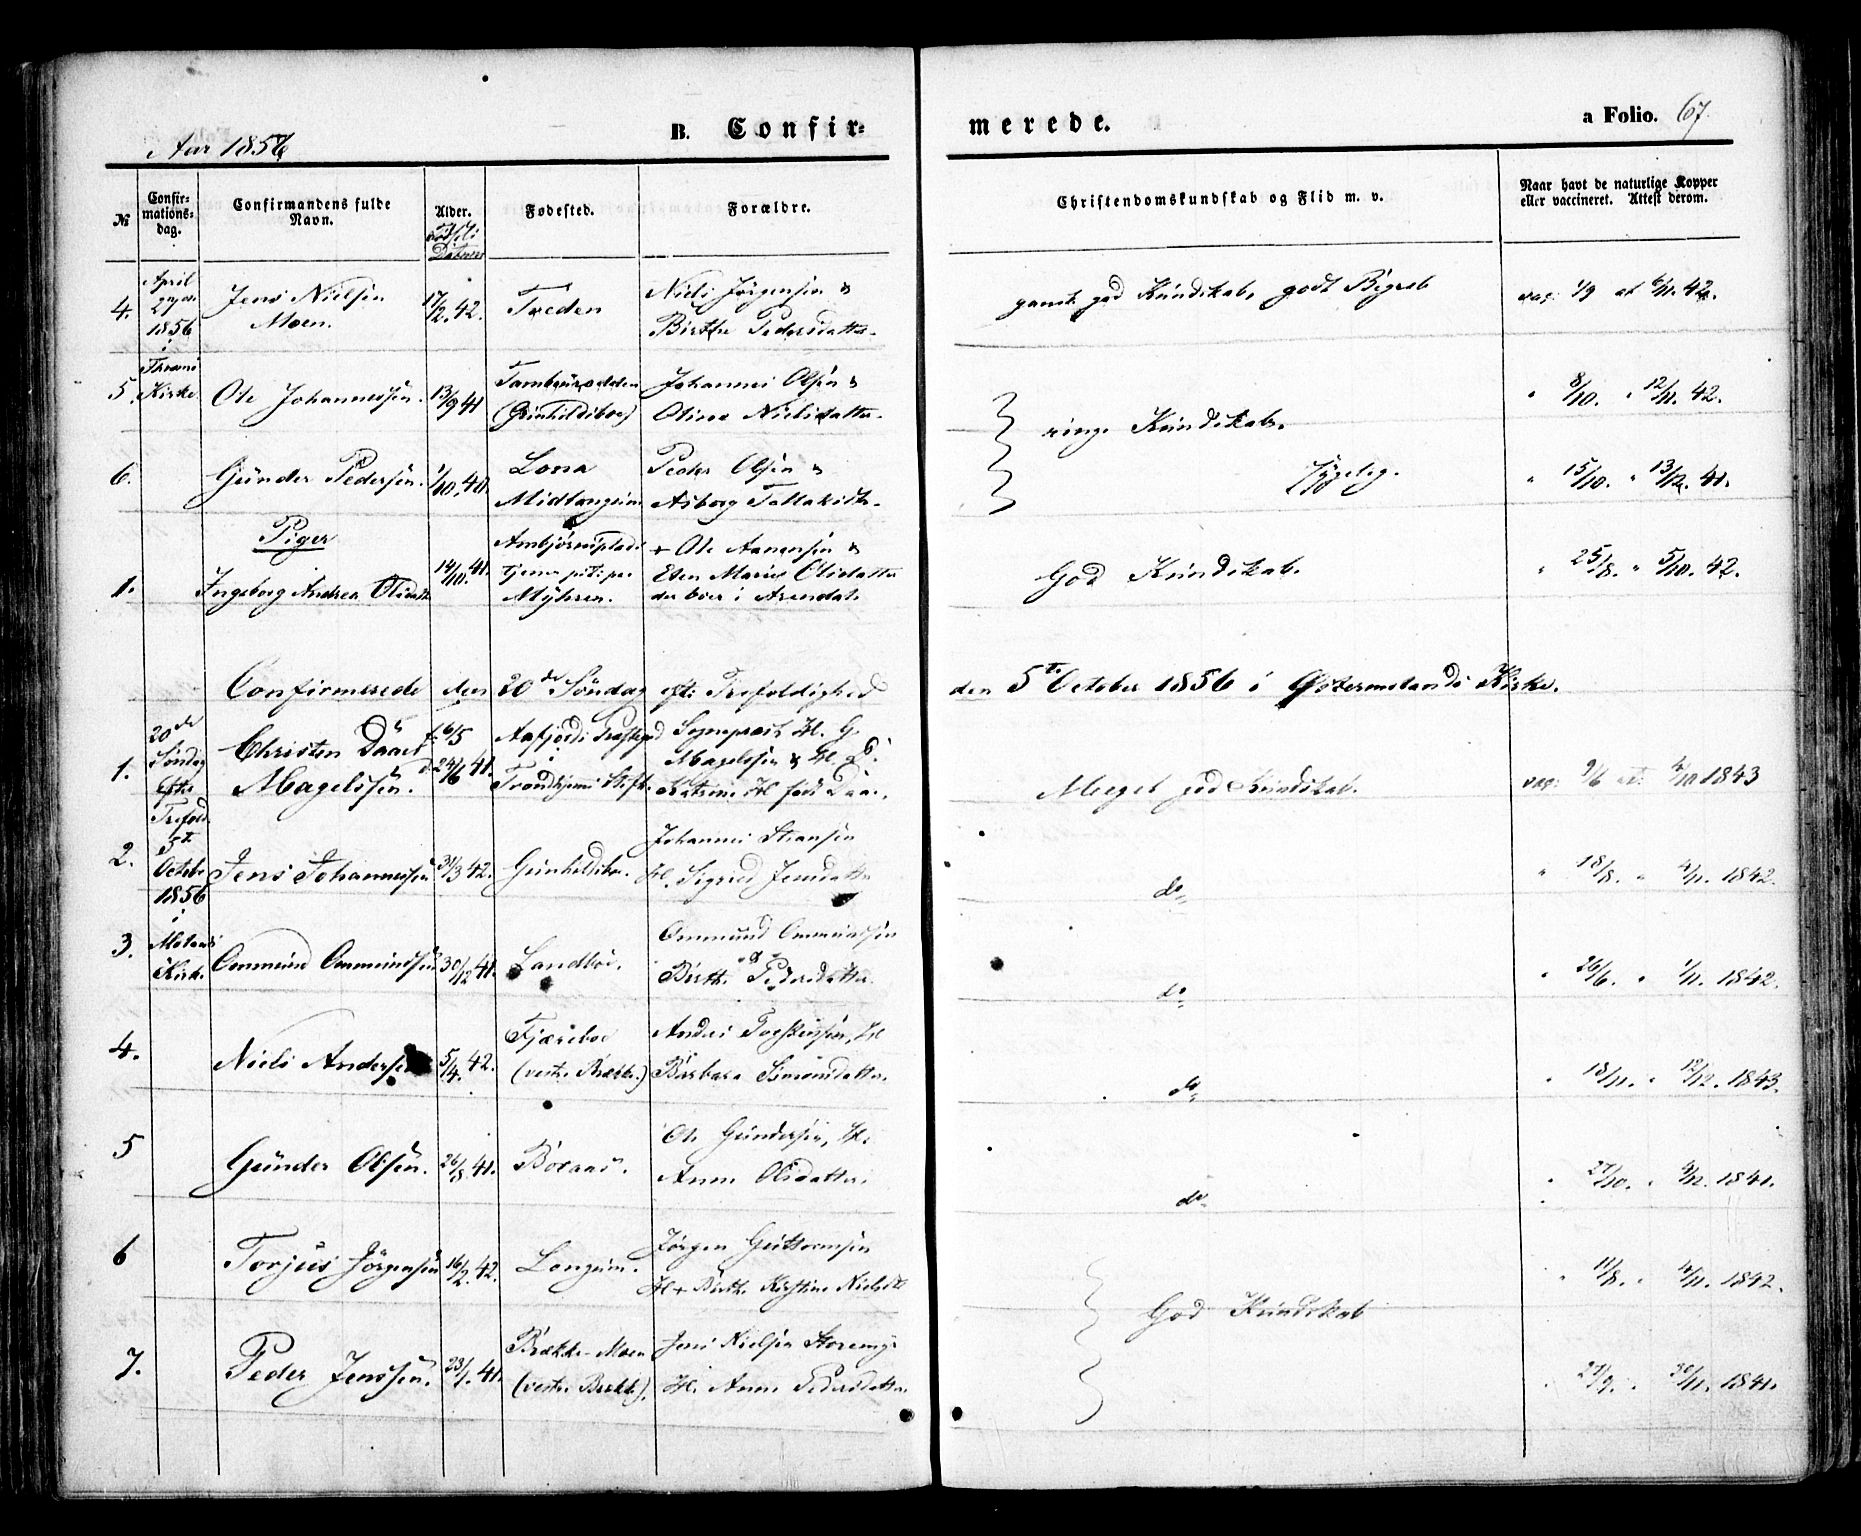 Aar 1856
B. Confirmerede.
a Folio. 67.
№
Confirmationsdag.
Confirmandens fulde Navn.
Alder.
Fødested.
Forældre.
Christendomskundskab og Flid m. v.
Naar havt de naturlige Kopper eller vaccineret. Attest derom.
4.
April
1856
i
Kirke.
Jens Nielsen
Moen.
17/2. 42.
Treden
Niels Jørgensen &
Birthe Pedersdatter.
gansk god Kundskab, godt Begreb
vac: 1/9 at 6/11. 42.
5.
Ole Johannessen.
13/9 41
(Gunhildsboe)
Johannes Olsen &
Olive Nielsdatter.
ringe Kundskab.
" 8/10. " 12/11. 42.
6.
Gunder Pedersen.
1/10. 40.
Lona
Midlongum
Peder Olsen &
Asborg Tallaksdtr.
Sygelig.
" 15/10. " 13/12. 41.
Piger
1.
Ingeborg Andrea Olsdatter
14/10. 41.
Ambjørnsplads
Myhren.
+ Ole Aanensen &
Elen Marie Olsdatter
der boer i Arendal.
God Kundskab.
" 25/8. " 5/10. 42.
Confirmerede den 20de Søndag eft: Trefoldighed den 5te October 1856 i Østermolands Kirke.
1.
20de
Søndag
efter
Trefold.
5te
October
1856
i
Molands
Kirke.
Christen Daae
Magelssen.
f. 6/5
d. 24/6 41.
Aafjords Præstegd
i
Trondhjems Stift.
Sognepræst H. G.
Magelssen & H.
Katrine H. født Daae.
Meget god Kundskab.
vac: 9/6 at: 4/10 1843
2.
Jens Johannessen
31/3 42.
Gunhildsboe.
Johannes
H. Sigrid Jensdatter
do
" 18/8. " 4/11. 1842.
3.
Ommund Ommundsen
30/12 41.
Landboe.
Ommund Ommundsen
&
Birthe Pedersdatter.
do
" 26/6. " 1/11. 1842.
4.
Niels Andersen
5/4. 42.
Fjæreboe
(vestre Brække.)
Anders Torkelsen, H.
Barbara Simonsdatter.
do
" 18/11. " 12/12. 1843.
5
Gunder Olsen.
26/8. 41.
Boraas.
Ole Gundersen, H.
Anne Olsdatter.
do
" 27/10. " 9/12. 1841.
6
Torjus Jørgensen
16/2. 42.
Longum.
Jørgen Guttormsen
H + Birthe Kirstine Nielsdtr
God Kundskab
" 11/8. " 4/11. 1842.
7.
Peder Jenssen.
23/1. 41.
Brække-Moen
(vestre Brække).
Jens Nielsen Storemyr
H. Anne Pedersdatter.
" 27/9. " 30/11. 1841.